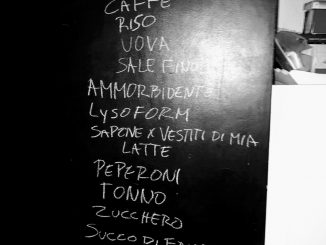 CAFFÈ
RISO
UOVA
SALE FINO
AMMORBIDENTE
LYSOFORM
SAPONE X VESTITI DI MIA
LATTE
PEPERONI
TONNO
ZUCCHERO
SUCCO DI